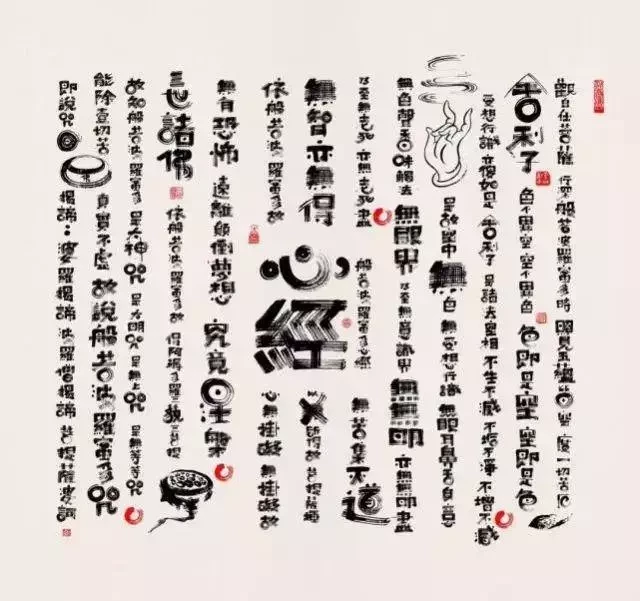 觀自在菩薩 行深般若波羅蜜多時 照見五蘊皆空 度一切苦厄
舍利子 色不異空 空不異色 色即是空 空即是色
受想行識 亦復如是 舍利子 是諸法空相 不生不滅 不垢不淨 不增不減
是故空中 無色 無受想行識 無眼耳鼻舌身意
無色聲香味觸法 無眼界 乃至無意識界 無無明 亦無無明盡
乃至無老死 亦無老死盡
般若波羅蜜多心經
無苦集滅道
無智亦無得
心經
以無所得故 菩提薩埵
依般若波羅蜜多故
心無掛礙 無掛礙故
無有恐怖 遠離顛倒夢想 究竟涅槃
三世諸佛 依般若波羅蜜多故 得阿耨多羅三藐三菩提
故知般若波羅蜜多 是大神咒 是大明咒 是無上咒 是無等等咒
能除壹切苦 真實不虛 故說般若波羅蜜多咒
即說咒曰 揭諦：婆羅揭諦 波羅僧揭諦 菩提薩婆訶